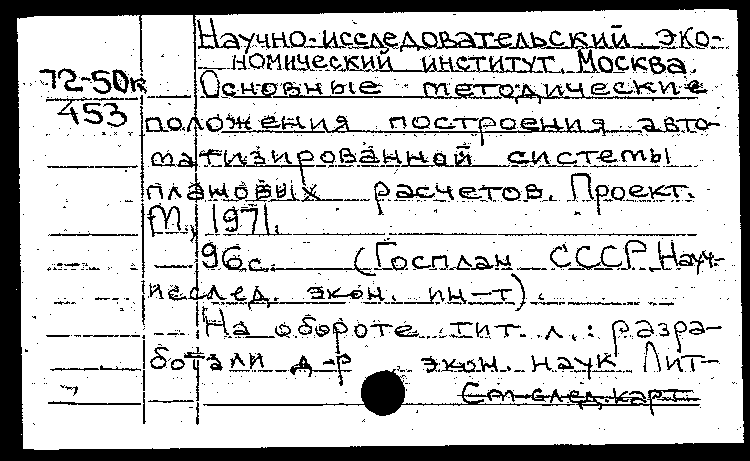 Научно-исследовательский эко-
номический институт. Москва.
72-50к Основные методические
453 положения построения авто-
матизированной системы
плановых расчетов. Проект.
М., 1971.
96с. (Госплан СССР. Науч-
исслед. экон. ин-т).
На обороте тит. л.: разра-
ботали д-р экон. наук Лит-
См след. карт